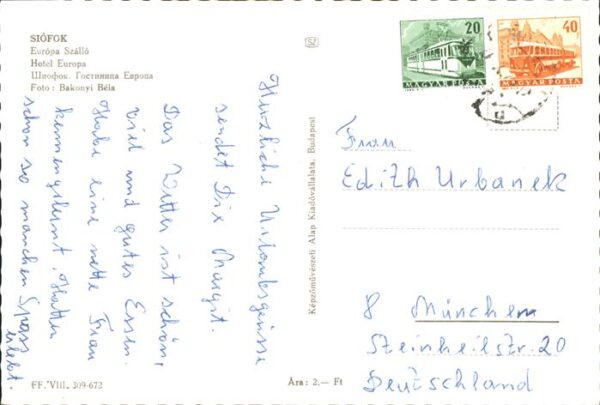 SIÓFOK
Európa Szálló
Hotel Europa
Шиофок. Гостиница Европа
Foto: Bakonyi Béla
Herzliche Urlaubsgrüsse
sendet Dir Margit.
Das Wetter ist schön,
viel und gutes Essen.
Habe eine nette Frau
kennengelernt. Hatten
schon so manchen Spass
erlebt.
FF. VIII. 309-672
Ára: 2.— Ft
Képzőművészeti Alap Kiadóvállalata, Budapest
20
MAGYAR POSTA
40
MAGYAR POSTA
Frau
Edith Urbanek
8 München
Steinheilstr. 20
Deutschland